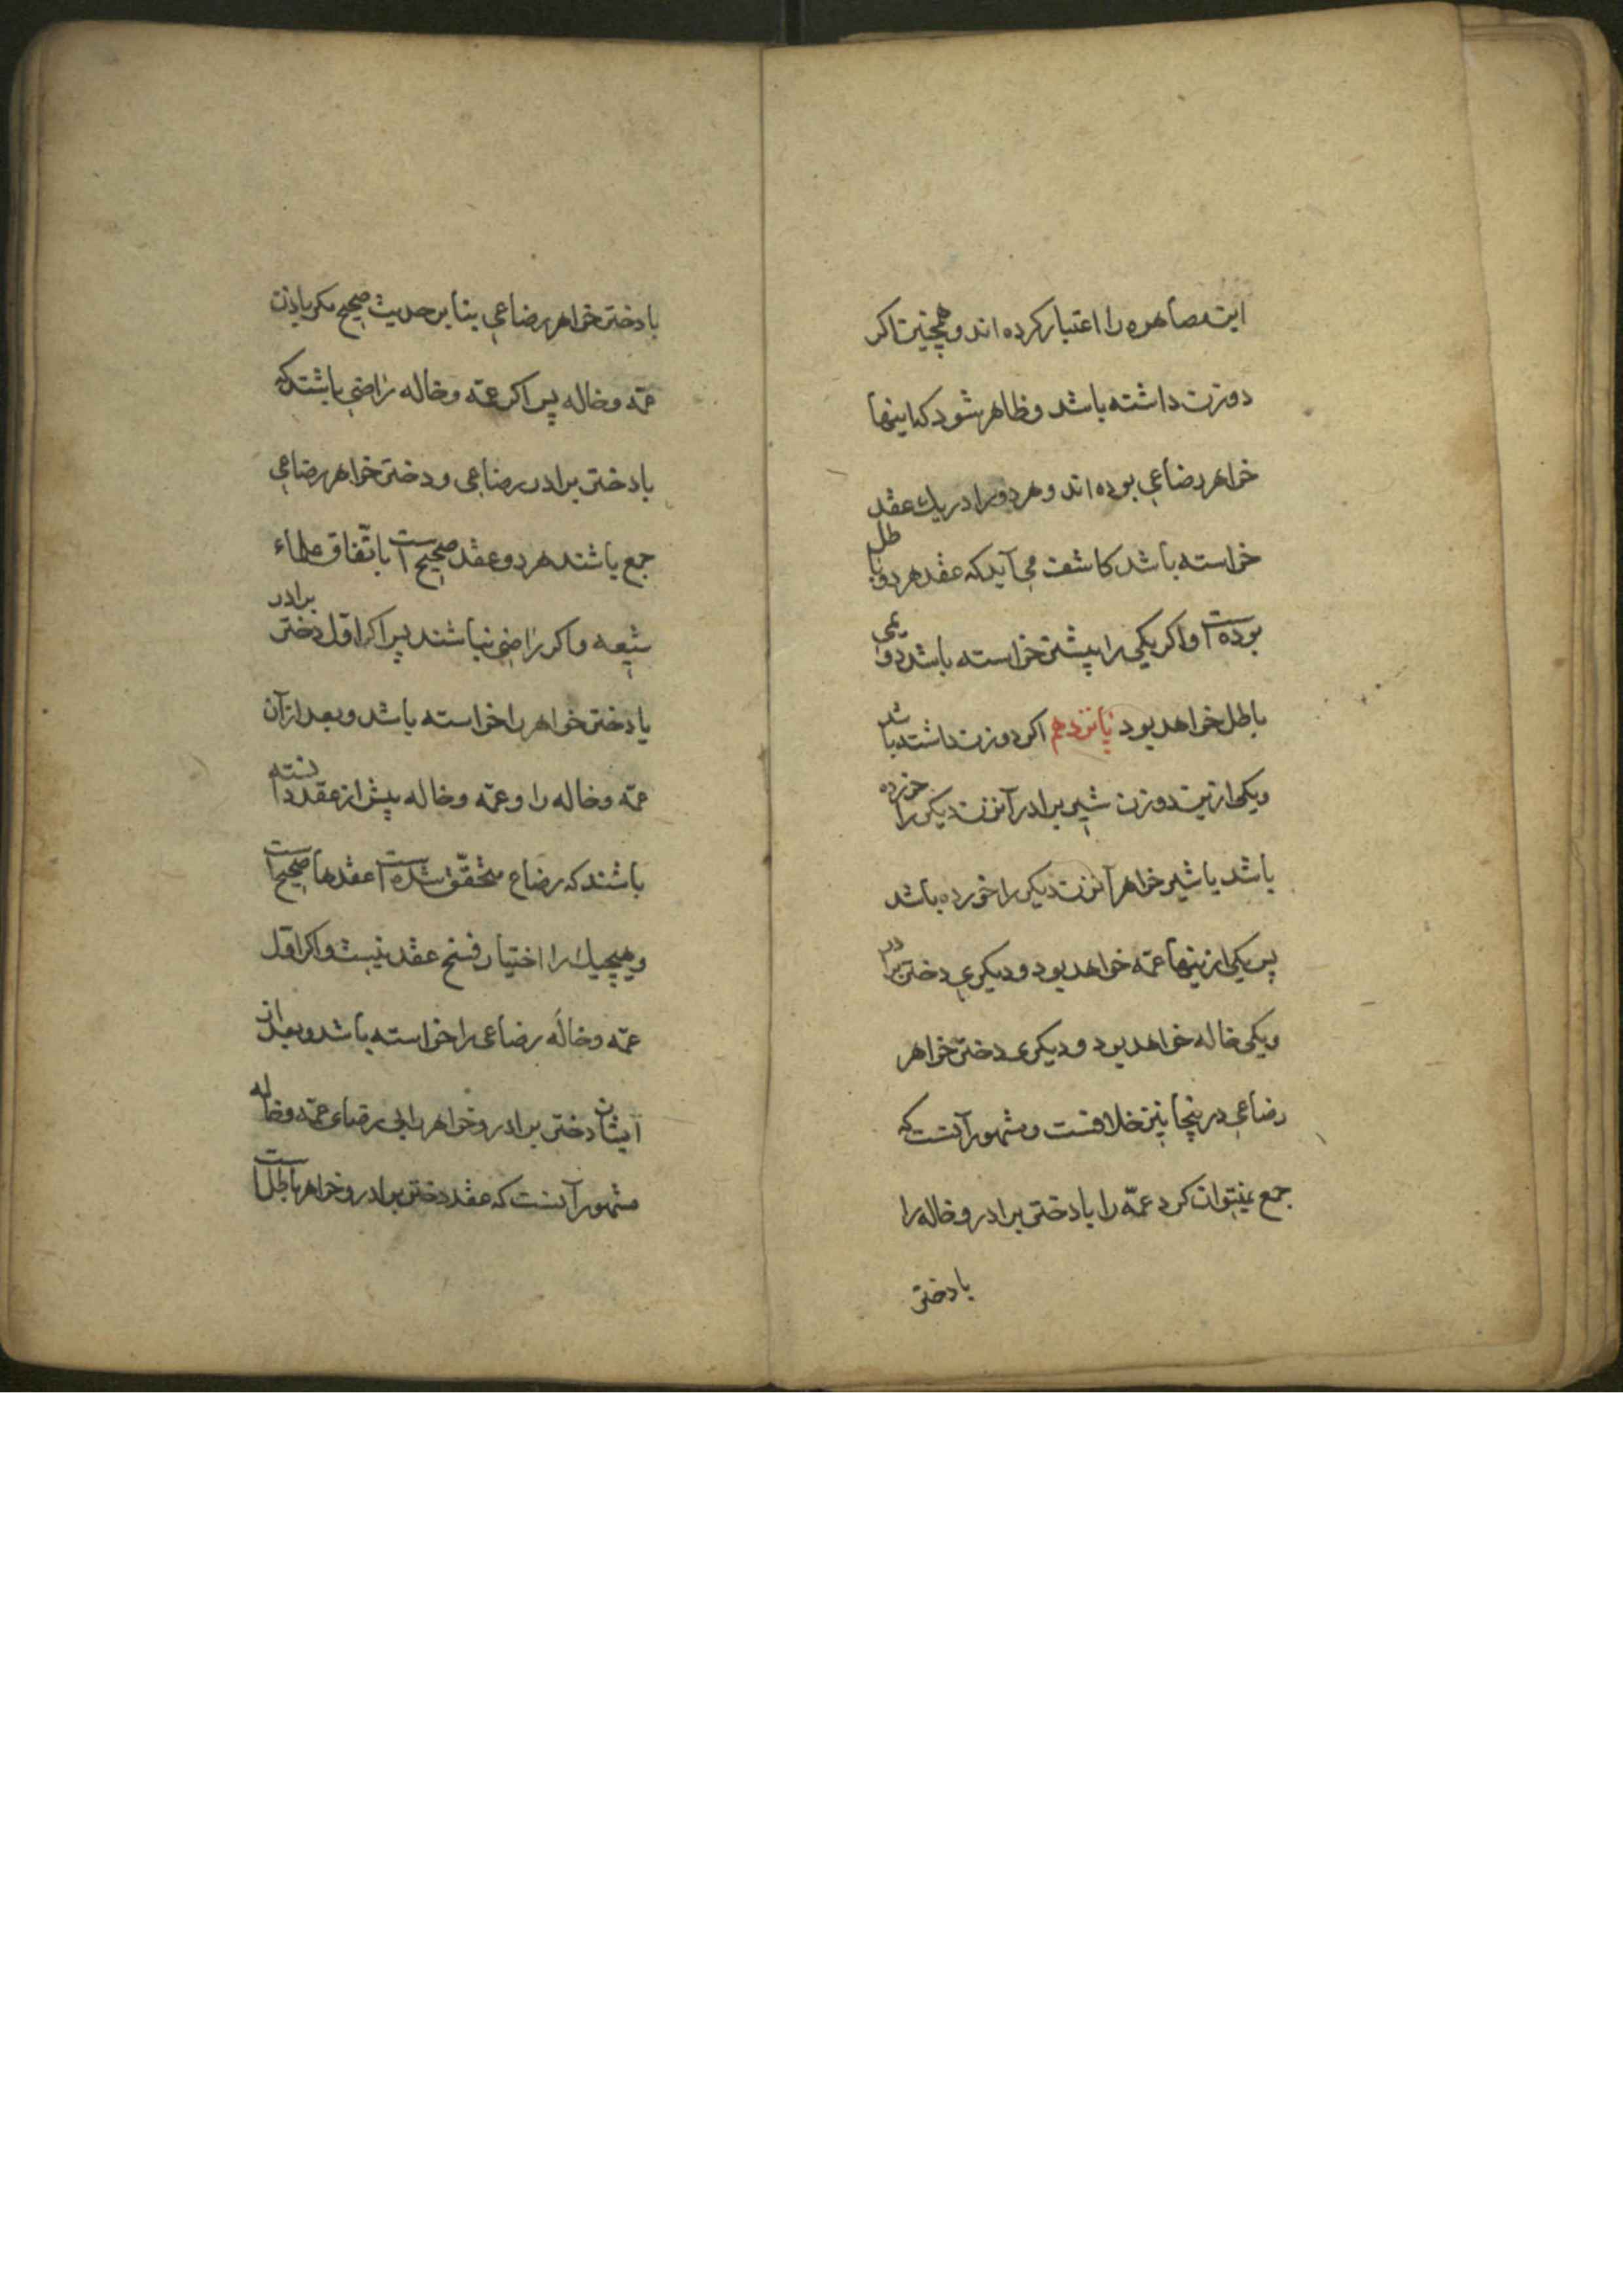 این مصاهره را اعتبار کرده اند و همچنین اکر
دو زن داشته باشد و ظاهر شود که اینها
خواهر رضاعی بوده اند و هر دو را در یك عقد
خواسته باشد کاشف می آید که عقد هر دو باطل
بوده است و اکر یکی را پیشتر خواسته باشد دویمی
باطل خواهد بود پانزدهم اکر دو زن داشته باشد
و یکی ازین دو زن شیر برادر آنزن دیکر را خورده
باشد یا شیر خواهر آنزن دیکر را خورده باشد
پس یکی ازینها عمّه خواهد بود و دیکری دختر برادر
و یکی خاله خواهد بود و دیکری دختر خواهر
رضاعی درینجا نیز خلافست و مشهور آنست که
جمع نمیتوان کرد عمّه را با دختر برادر و خاله را
با دختر
با دختر خواهر رضاعی بنا بر حدیث صحیح مکر باذن
عمّه و خاله پس اکر عمّه و خاله راضی باشند که
با دختر برادر رضاعی و دختر خواهر رضاعی
جمع باشند هر دو عقد صحیح است باتّفاق علماء
شیعه و اکر راضی نباشند پس اکر اوّل دختر برادر
یا دختر خواهر را خواسته باشد و بعد از آن
عمّه و خاله را و عمّه و خاله پیش از عقد دانسته
باشند که رضاع متحقّق شده است عقدها صحیح است
و هیچیك را اختیار فسخ عقد نیست و اکر اوّل
عمّه و خاله رضاعی را خواسته باشد و بعد از
ایشان دختر برادر و خواهر را بی رضای عمّه و خاله
مشهور آنست که عقد دختر برادر و خواهر باطل است